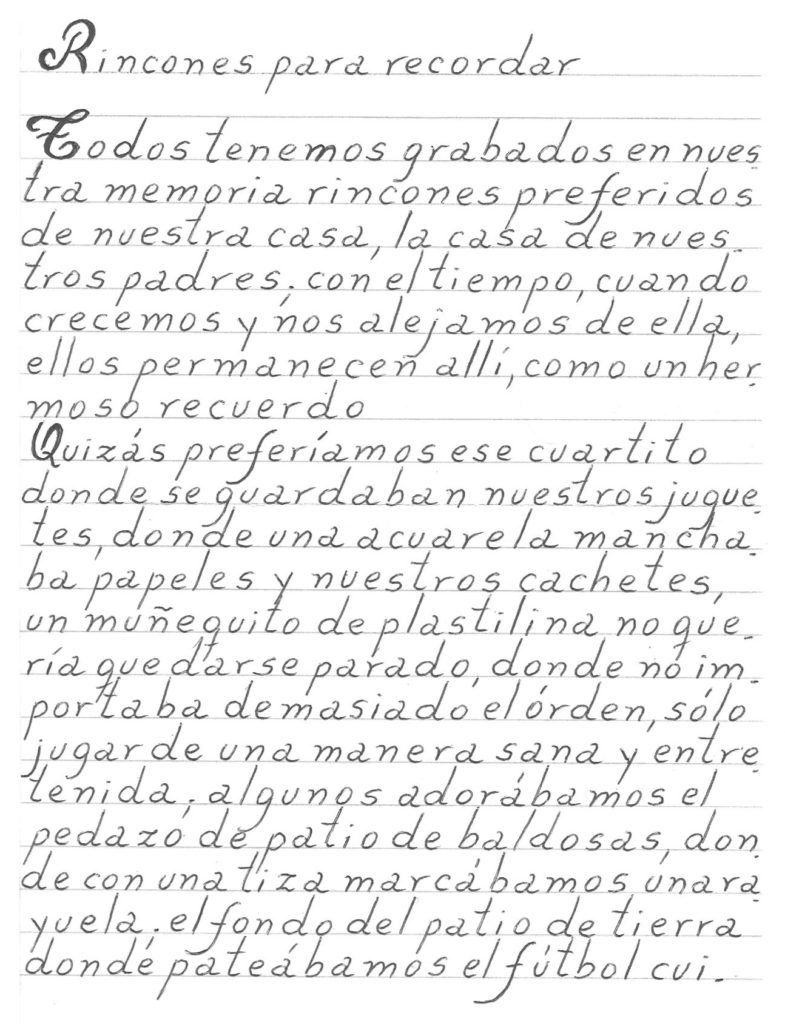 Rincones para recordar
Todos tenemos grabados en nues
tra memoria rincones preferidos
de nuestra casa, la casa de nues-
tros padres; con el tiempo, cuando
crecemos y nos alejamos de ella,
ellos permanecen allí, como un her-
moso recuerdo
Quizás preferíamos ese cuartito
donde se guardaban nuestros jugue-
tes, donde una acuarela mancha-
ba papeles y nuestros cachetes,
un muñequito de plastilina no que-
ría quedarse parado, donde no im-
portaba demasiado el órden, sólo
jugar de una manera sana y entre-
tenida; algunos adorábamos el
pedazo de patio de baldosas, don-
de con una tiza marcábamos una ra-
yuela. el fondo del patio de tierra
donde pateábamos el fútbol cui-